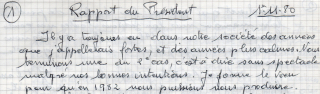 1 Rapport du Président 1.11.80
Il y a toujours eu dans notre société des années
que j'appellerais fortes, et des années plus calmes. Nous
terminons une du 2e cas, c'est à dire sans spectacle
malgré nos bonnes intentions. Je forme le voeu
pour qu'en 1982 nous puissions nous produire.